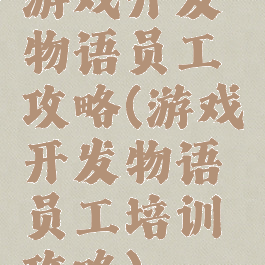 游戏开发
物语员工
攻略(游戏
开发物语
员工培训
攻略)